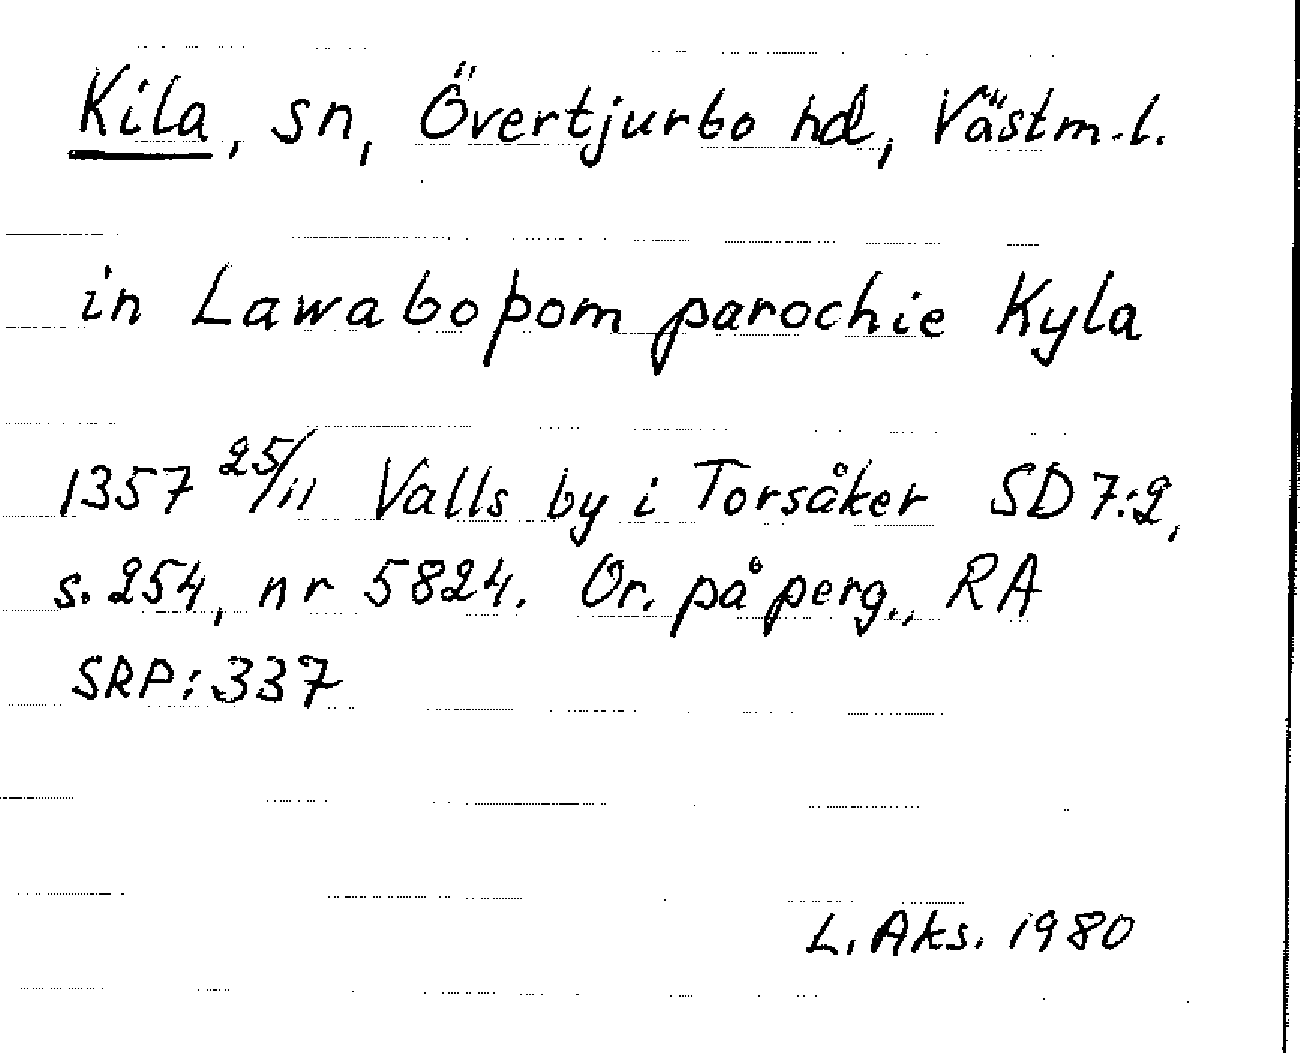 Kila, sn, Övertjurbo hd, Västm.l.
in Lawaboþom parochie Kyla
1357 25/11 Valls by i Torsåker SD 7:2,
s. 254, nr 5824. Or. på perg., RA
SRP: 337
L. Aks. 1980